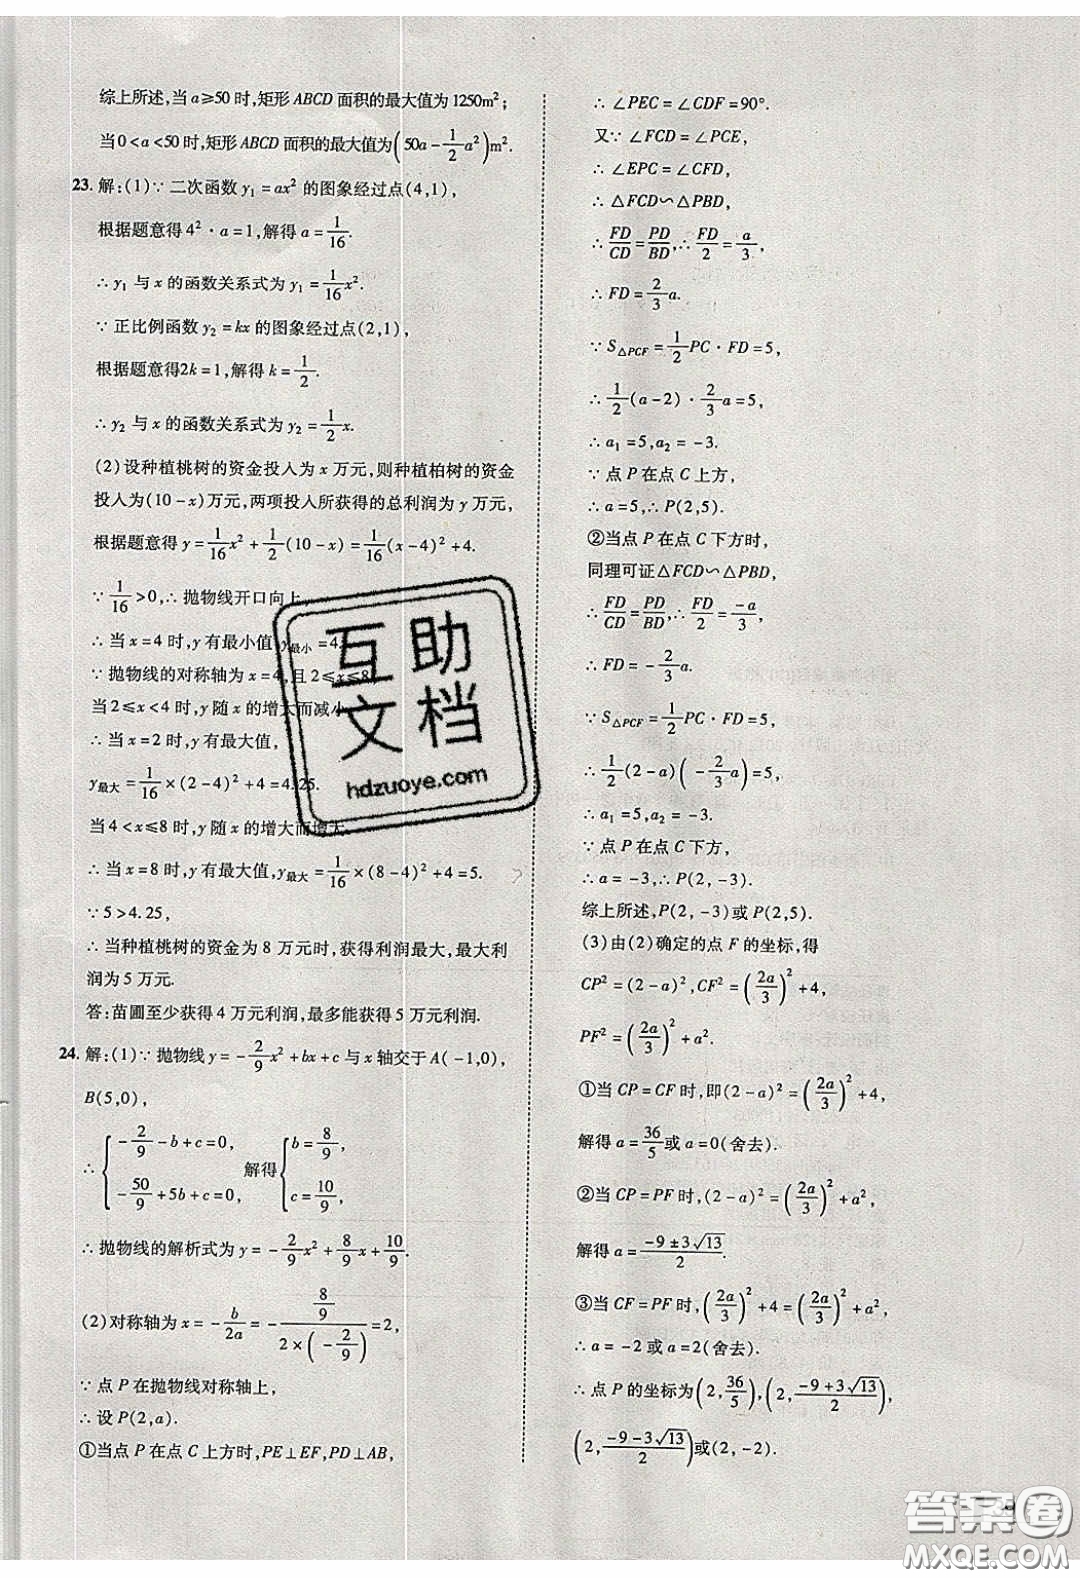 综上所述,当 a≥50 时,矩形 ABCD 面积的最大值为 1250m²;
当 0<a<50 时,矩形 ABCD 面积的最大值为(50a-1/2a²)m².
23. 解:(1)∵ 二次函数 y₁=ax² 的图象经过点(4,1),
根据题意得 4²·a=1,解得 a=1/16.
∴ y₁ 与 x 的函数关系式为 y₁=1/16x².
∵ 正比例函数 y₂=kx 的图象经过点(2,1),
根据题意得2k=1,解得 k=1/2.
∴ y₂ 与 x 的函数关系式为 y₂=1/2x.
(2)设种植桃树的资金投入为 x 万元,则种植柏树的资金
投入为(10-x)万元,两项投入所获得的总利润为 y 万元,
根据题意得 y=1/16x²+1/2(10-x)=1/16(x-4)²+4.
∵ 1/16>0,∴ 抛物线开口向上
∴ 当 x=4 时,y 有最小值 y最小=4.
∵ 抛物线的对称轴为 x=4,且 2≤x≤8,
当 2≤x<4 时,y 随 x 的增大而减小
∴ 当 x=2 时,y 有最大值,
y最大=1/16×(2-4)²+4=4.25.
当 4<x≤8 时,y 随 x 的增大而增大.
∴ 当 x=8 时,y 有最大值,y最大=1/16×(8-4)²+4=5.
∵ 5>4.25,
∴ 当种植桃树的资金为 8 万元时,获得利润最大,最大利
润为 5 万元.
答:苗圃至少获得 4 万元利润,最多能获得 5 万元利润.
24. 解:(1)∵ 抛物线 y=-2/9x²+bx+c 与 x 轴交于 A(-1,0),
B(5,0),
∴ {-2/9-b+c=0, -50/9+5b+c=0, 解得 {b=8/9, c=10/9,
∴ 抛物线的解析式为 y=-2/9x²+8/9x+10/9.
(2)对称轴为 x=-b/2a=-(8/9)/(2×(-2/9))=2,
∵ 点 P 在抛物线对称轴上,
∴ 设 P(2,a).
①当点 P 在点 C 上方时,PE⊥EF,PD⊥AB,
∴ ∠PEC=∠CDF=90°.
又∵ ∠FCD=∠PCE,
∴ ∠EPC=∠CFD,
∴ △FCD∽△PBD,
∴ FD/CD=PD/BD,∴ FD/2=a/3,
∴ FD=2/3a.
∵ S△PCF=1/2PC·FD=5,
∴ 1/2(a-2)·2/3a=5,
∴ a₁=5,a₂=-3.
∵ 点 P 在点 C 上方,
∴ a=5,∴ P(2,5).
②当点 P 在点 C 下方时,
同理可证△FCD∽△PBD,
∴ FD/CD=PD/BD,∴ FD/2=-a/3,
∴ FD=-2/3a.
∵ S△PCF=1/2PC·FD=5,
∴ 1/2(2-a)(-2/3a)=5,
∴ a₁=5,a₂=-3.
∵ 点 P 在点 C 下方,
∴ a=-3,∴ P(2,-3).
综上所述,P(2,-3)或P(2,5).
(3)由(2)确定的点 F 的坐标,得
CP²=(2-a)²,CF²=(2a/3)²+4,
PF²=(2a/3)²+a².
①当 CP=CF 时,即(2-a)²=(2a/3)²+4,
解得 a=36/5或 a=0(舍去).
②当 CP=PF 时,(2-a)²=(2a/3)²+a²,
解得 a=(-9±3√13)/2.
③当 CF=PF 时,(2a/3)²+4=(2a/3)²+a²,
∴ a=-2 或 a=2(舍去).
∴ 点 P 的坐标为(2,36/5),(2,(-9+3√13)/2),
(2,(-9-3√13)/2)或(2,-2).
互助
文档
hdzuoye.com
答案圈
MXQE.COM